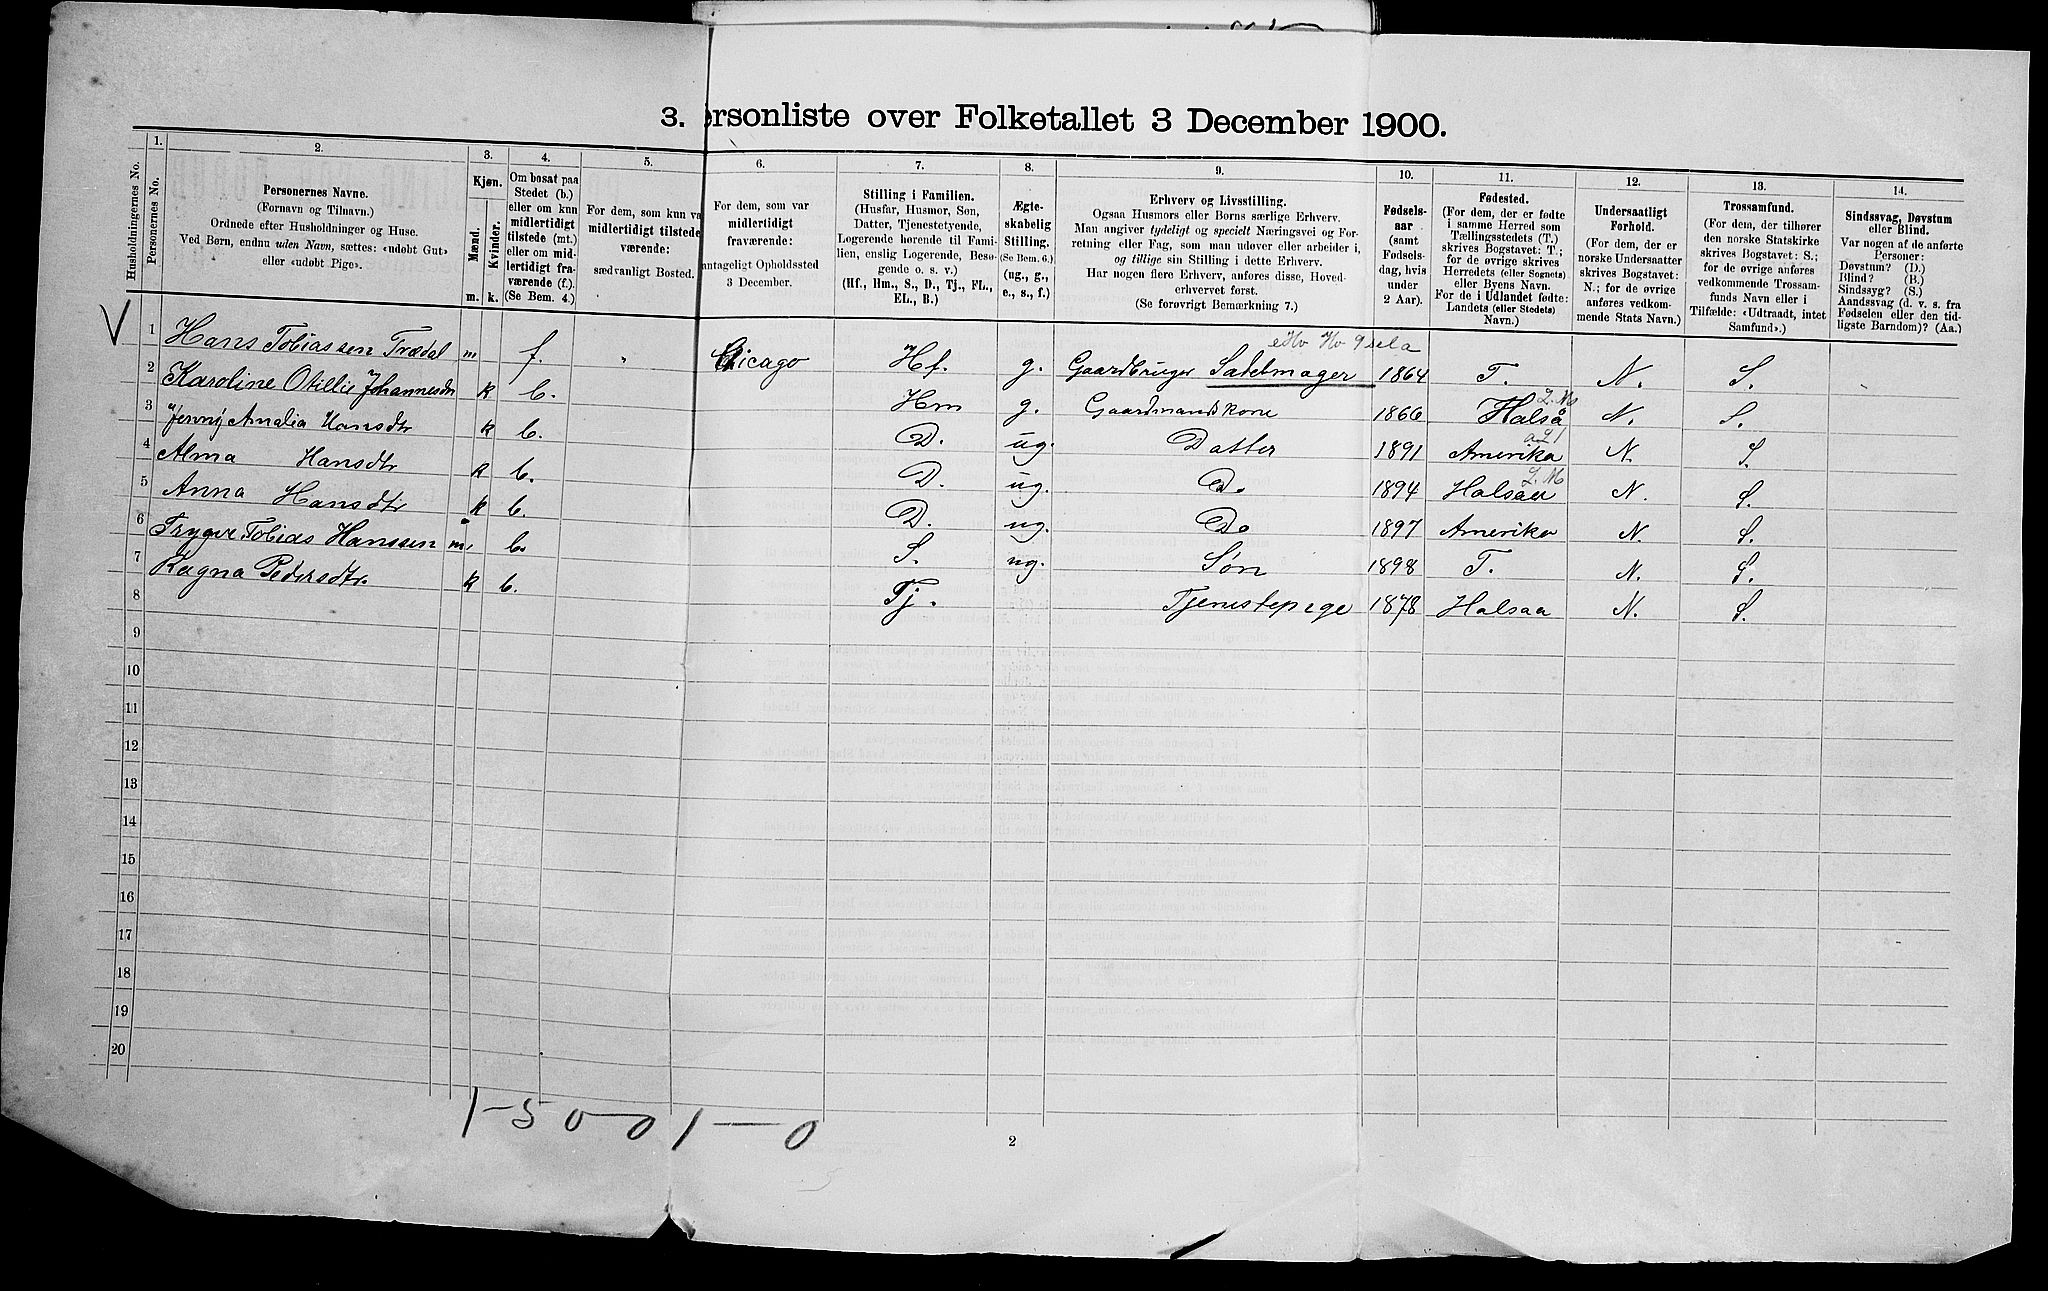 3. ersonliste over Folketallet 3 December 1900.
Husholdningernes No.
1.
Personernes No.
2.
Personernes Navne.
(Fornavn og Tilnavn.)
Ordnede efter Husholdninger og Huse.
Ved Børn, endnu uden Navn, sættes: «udøbt Gut»
eller «udøbt Pige».
3.
Kjøn.
Mænd.
Kvinder.
m. k.
4.
Om bosat paa
Stedet (b.)
eller om kun
midlertidigt
tilstede (mt.)
eller om mid-
lertidigt fra-
værende (f.).
(Se Bem. 4.)
5.
For dem, som kun va
midlertidigt tilstede
værende:
sædvanligt Bosted.
6.
For dem, som var
midlertidigt
fraværende:
antageligt Opholdssted
3 December.
7.
Stilling i Familien.
(Husfar, Husmor, Søn,
Datter, Tjenestetyende,
Logerende hørende til Fami-
lien, enslig Logerende, Besø-
gende o. s. v.)
(Hf., Hm., S., D., Tj., FL.,
EL., B.)
8.
Ægte-
skabelig
Stilling.
(Se Bem. 6.)
(ug., g.,
e., s., f.)
9.
Erhverv og Livsstilling.
Ogsaa Husmors eller Børns særlige Erhverv.
Man angiver tydeligt og specielt Næringsvei og For-
retning eller Fag, som man udøver eller arbeider i,
og tillige sin Stilling i dette Erhverv.
Har nogen flere Erhverv, anføres disse, Hoved-
erhvervet først.
(Se forøvrigt Bemærkning 7.)
10.
Fødsels-
aar
(samt
Fødsels-
dag, hvis
under
2 Aar).
11.
Fødested.
(For dem, der er fødte
i samme Herred som
Tællingsstedets (T.)
skrives Bogstavet: T.;
for de øvrige skrives
Herredets (eller Sognets)
eller Byens Navn.
For de i Udlandet fødte:
Landets (eller Stedets)
Navn.)
12.
Undersaatligt
Forhold.
(For dem, der er
norske Undersaatter
skrives Bogstavet:
N.; for de øvrige
anføres vedkom-
mende Stats Navn.)
13.
Trossamfund.
(For dem, der tilhører
den norske Statskirke
skrives Bogstavet: S.;
for de øvrige anføres
vedkommende Trossam-
funds Navn eller i
Tilfælde: «Udtraadt, intet
Samfund».)
14.
Sindssvag, Døvstum
eller Blind.
Var nogen af de anførte
Personer:
Døvstum? (D.)
Blind? (B.)
Sindssyg? (S.)
Aandssvag (d. v. s. fra
Fødselen eller den tid-
ligste Barndom)? (Aa.)
V 1 Hans Tobiassen Trædal m f. " Chicago Hf. g. Gaardbruger Sadelmager 1864 T. N. S.
2 Karoline Otillie Johannesdtr k b. Hm g. Gaardmandskone 1866 Halså Z. M N. S.
3 Jenny Amalia Hansdtr k b. D. ug. Datter 1891 Amerika N. S.
4 Alma Hansdtr k b. D. ug. Do 1894 Halsaa Z. M N. S.
5 Anna Hansdtr k b. D. ug. Do 1897 Amerika N. S.
6 Trygve Tobias Hanssen m. b. S. ug. Søn 1898 T. N. S.
7 Ragna Pedersdtr. k b. Tj. Tjenestepige 1878 Halsaa N. S.
8
9
10
11
12
13
14
15
16
17
18
19
20
1-5 0-0 1-0
2